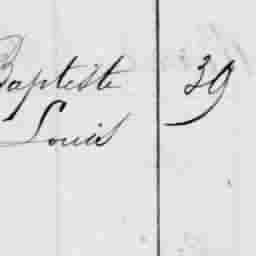 Baptiste 39
Louis